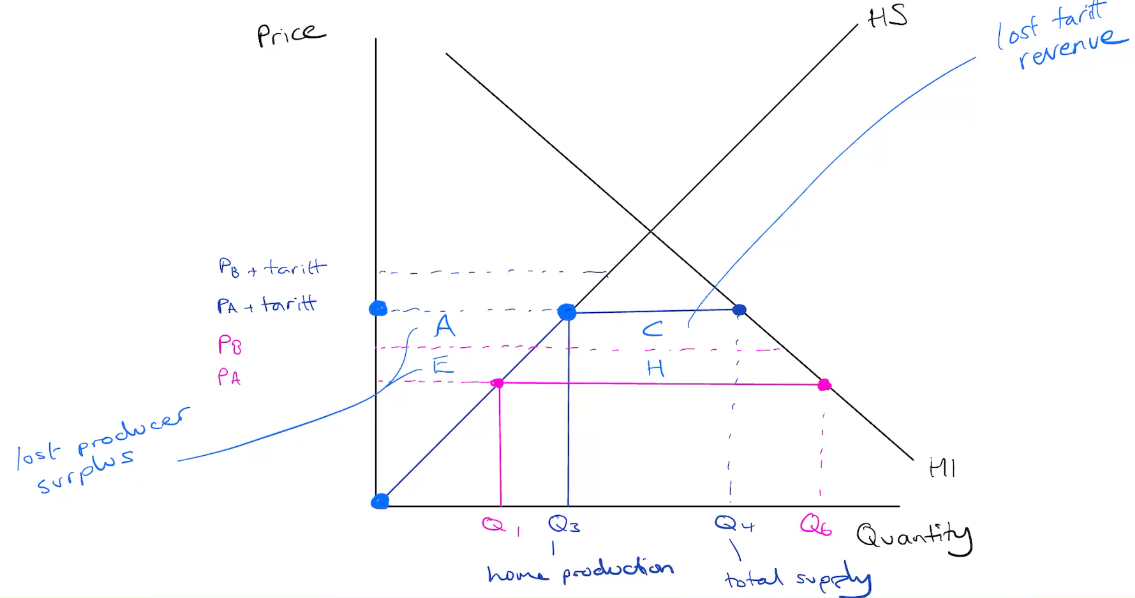 Price
HS
lost tariff
revenue
PB + tariff
PA + tariff
A
C
PB
E
H
PA
lost producer
surplus
HI
Q1
Q3
Q4
Q6
Quantity
home production
total supply